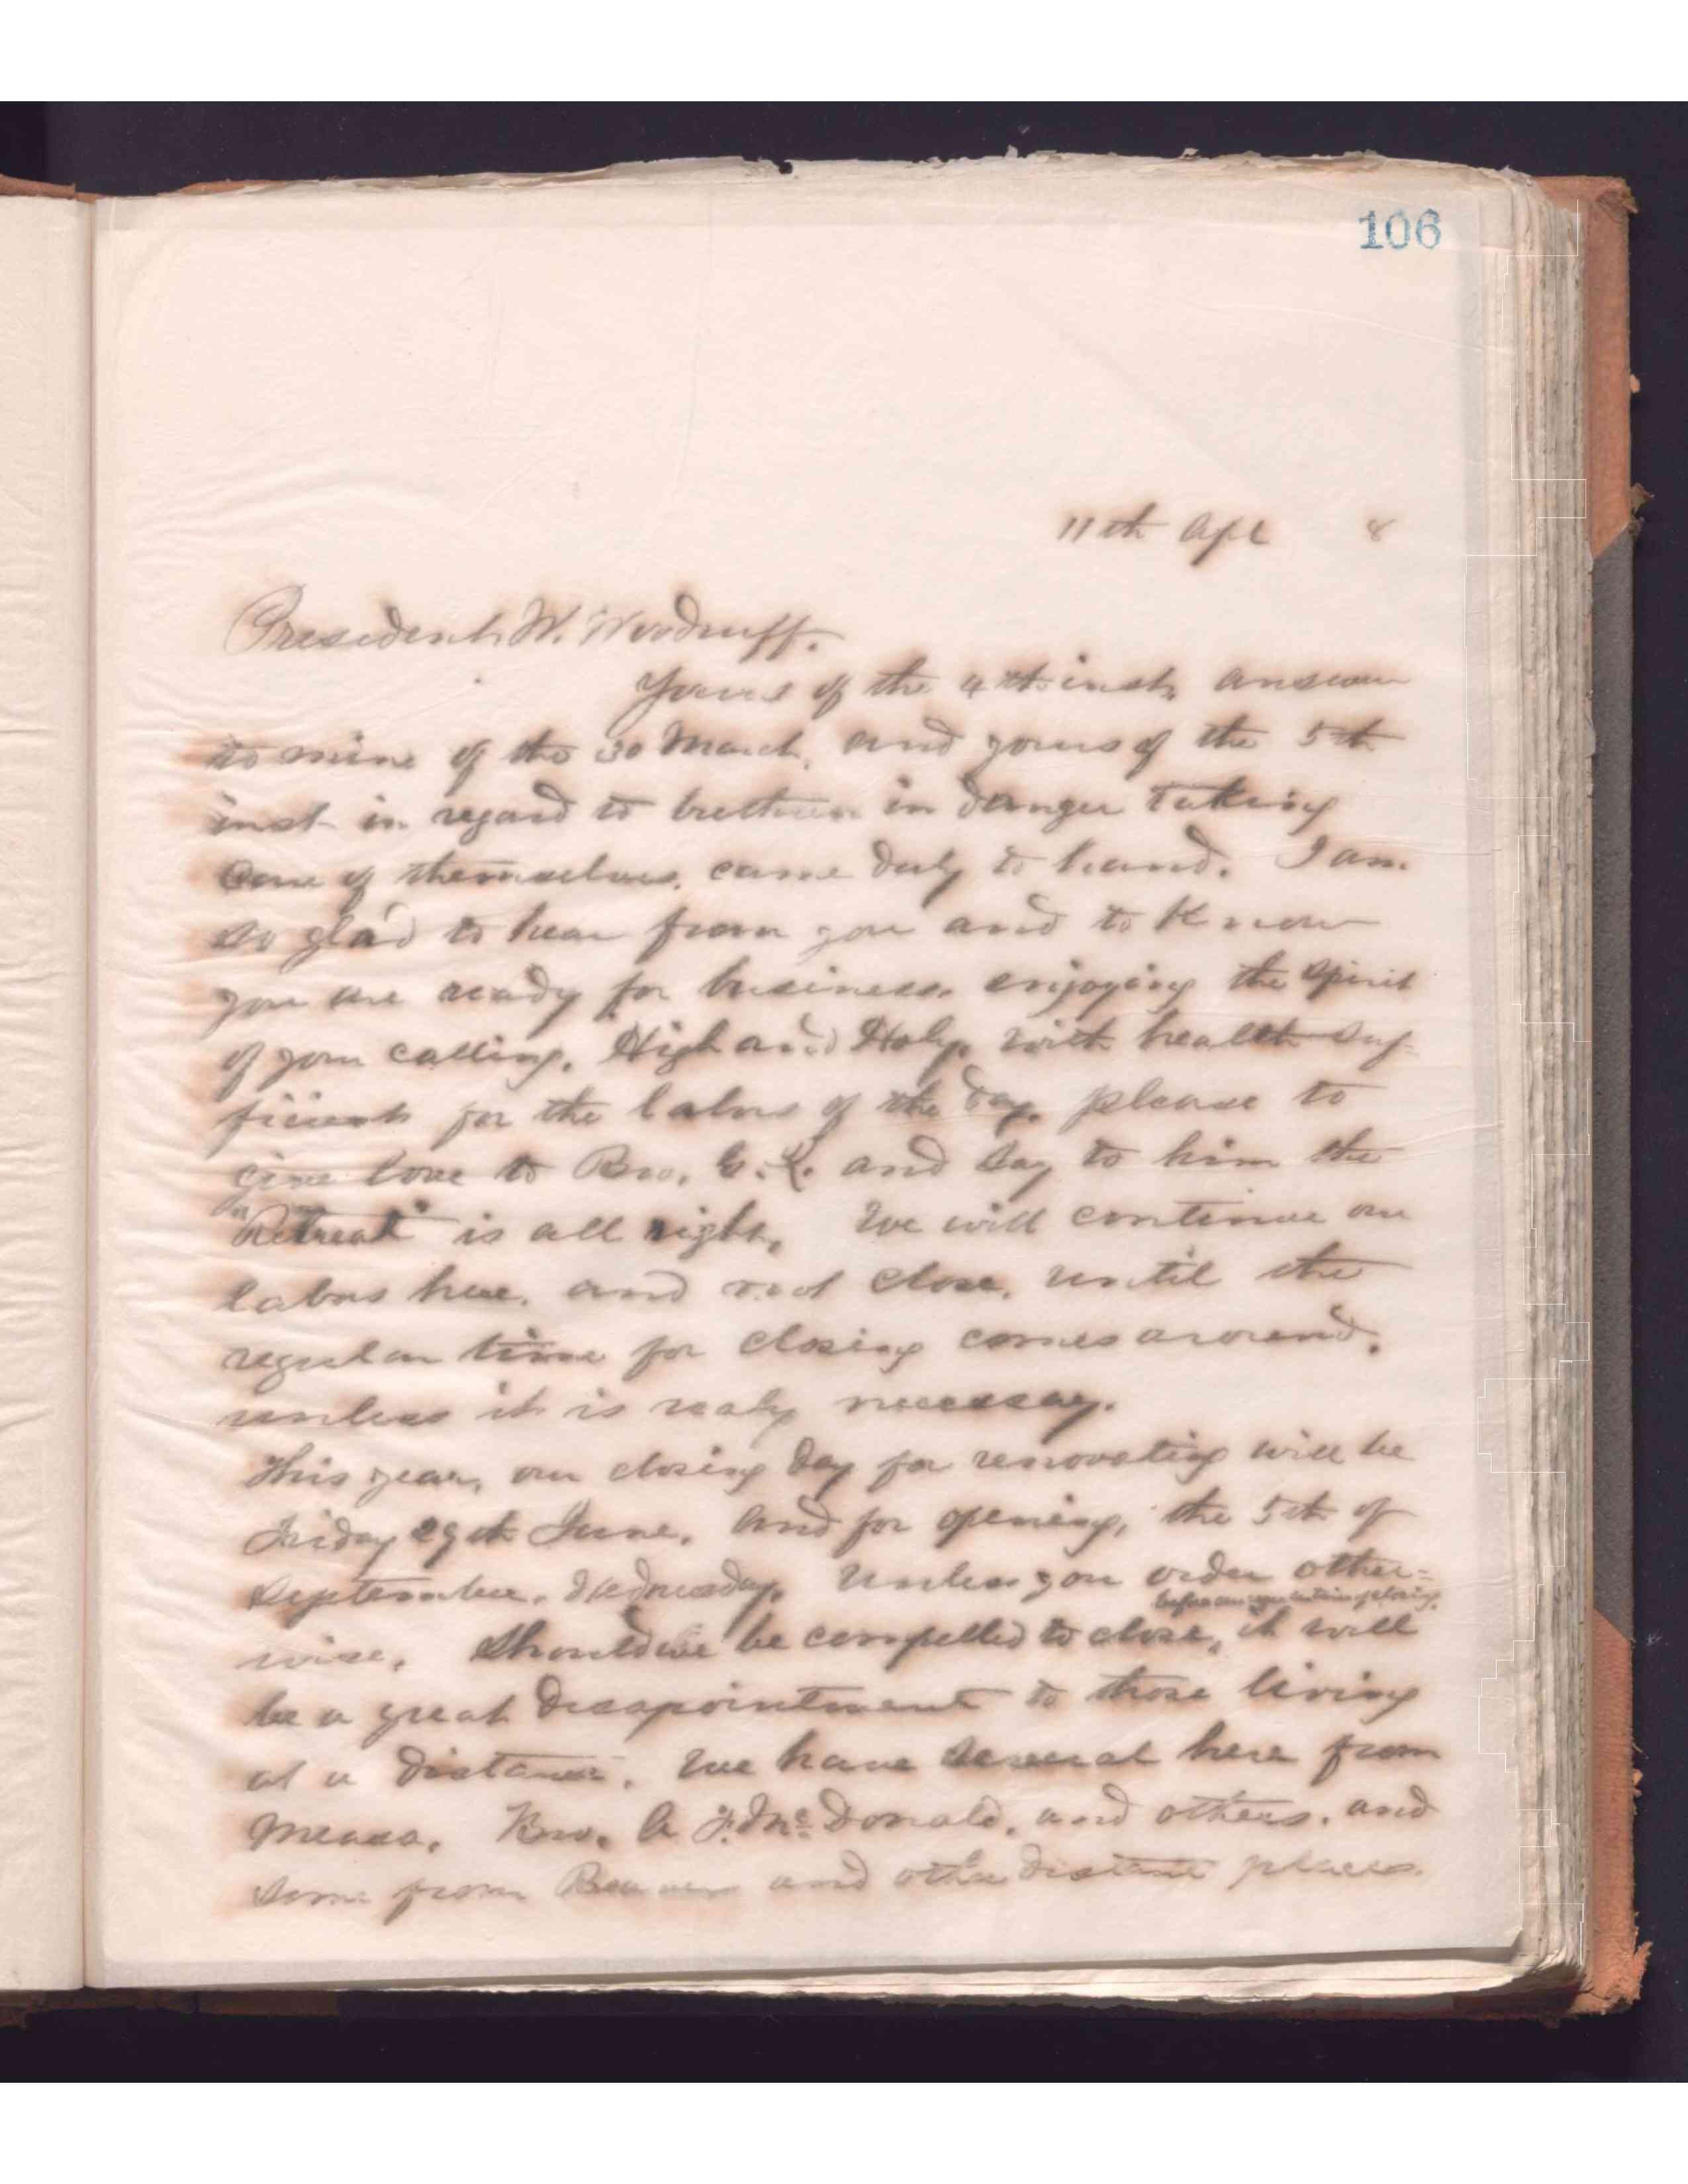 106
11th Apl 8
President W. Woodruff.
Yours of the 4th inst, answer
to mine of the 30 March, and yours of the 5th
inst in regard to brethren in danger taking
care of themselves, came duly to hand. I am
so glad to hear from you and to know
you are ready for business, enjoying the spirit
of your calling, High and Holy, with health suf-
ficient for the labors of the day. please to
give love to Bro. and say to him the
"Retreat" is all right, We will continue our
labors here, and not close, until the
regular time for closing comes around,
unless it is realy necessary.
This year, our closing day for renovating will be
Friday 29th June, and for opening, the 5th of
September, Wednesday, Unless you order other=
wise. Should we be compelled to close, it will
before our closing,
be a great disapointment to those living
at a distance. We have several here from
Measa, Bro. A F. Mc Donald, and others, and
some from Beaver and other distant places.